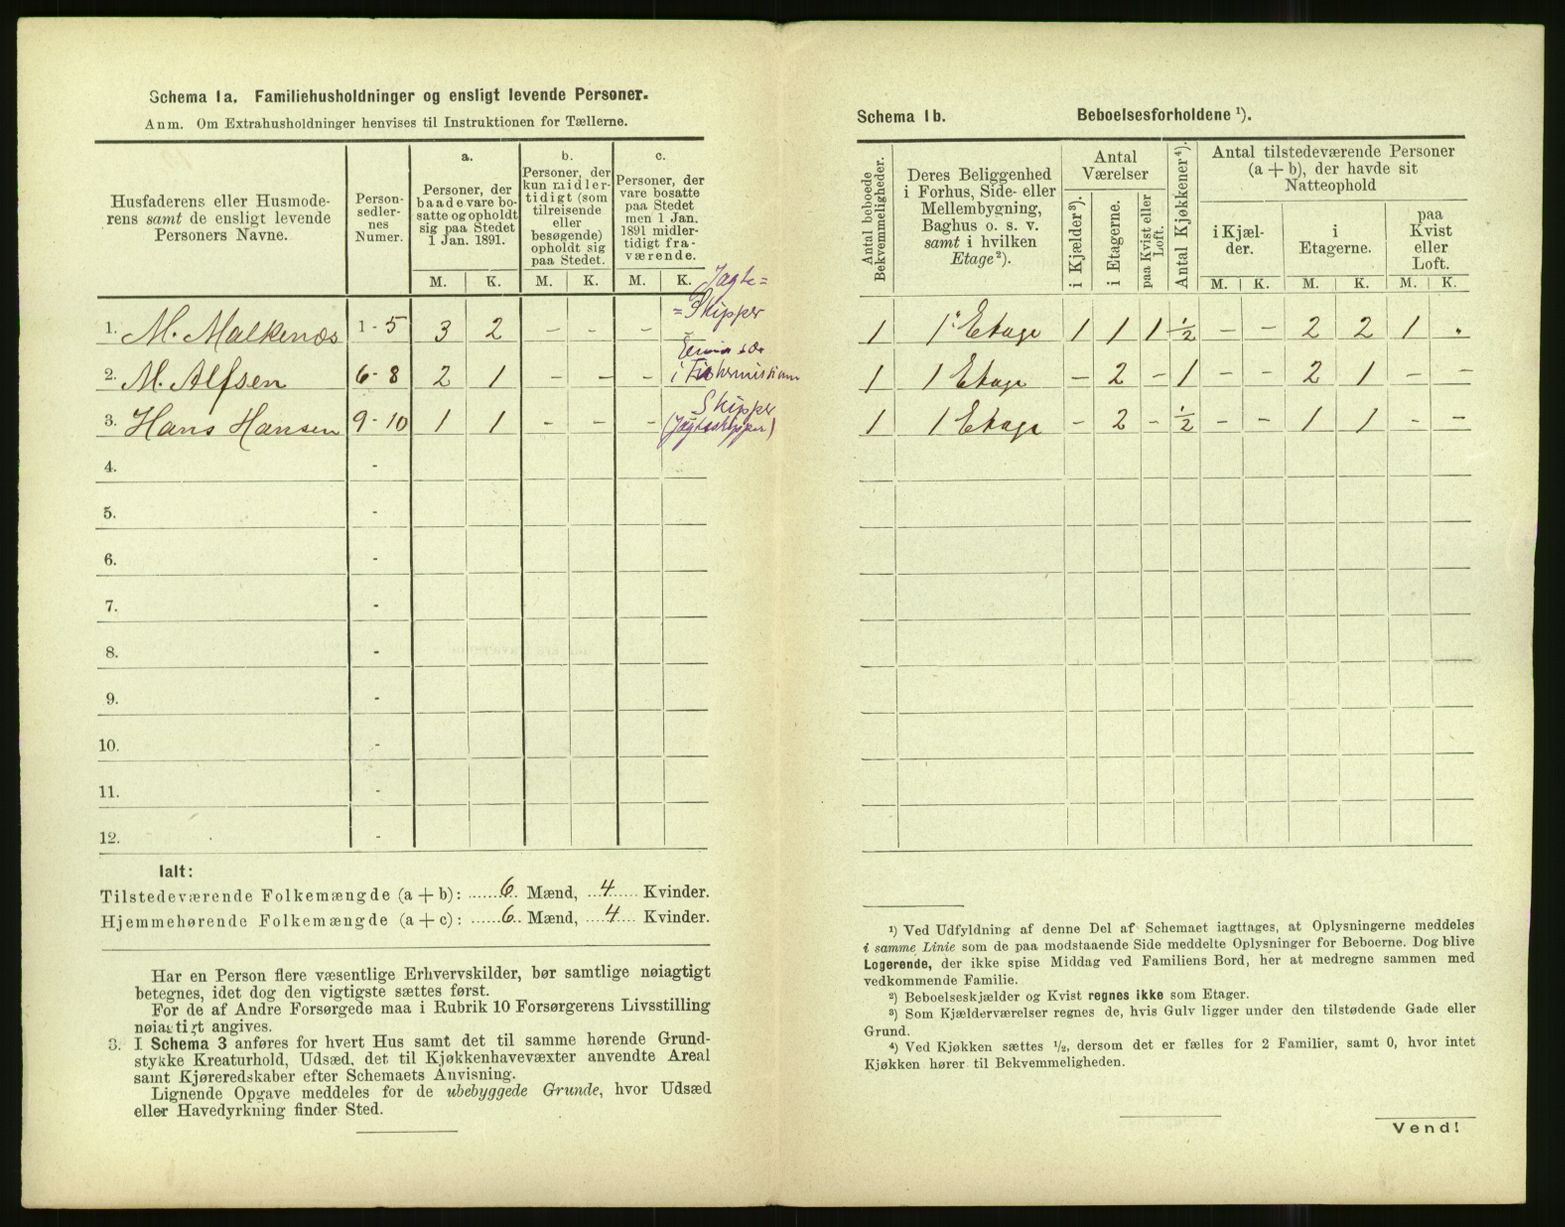 Schema 1a. Familiehusholdninger og ensligt levende Personer.
Anm. Om Extrahusholdninger henvises til Instruktionen for Tællerne.
Husfaderens eller Husmode-
rens samt de ensligt levende
Personers Navne.
Person-
sedler-
nes
Numer.
a.
Personer, der
baade vare bo-
satte og opholdt
sig paa Stedet
1 Jan. 1891.
b.
Personer, der
kun midler-
tidigt (som
tilreisende
eller
besøgende)
opholdt sig
paa Stedet.
c.
Personer, der
vare bosatte
paa Stedet
men 1 Jan.
1891 midler-
tidigt fra-
værende.
M. K. M. K. M. K.
Jagte=
=Skipper
1. M. Malkenæs 1-5 3 2 – – –
2. M. Alfsen 6-8 2 1 – – – i
Skipper
3. Hans Hansen 9-10 1 1 – – – (Jagteskipper)
4. -
5. -
6. -
7. -
8. -
9. -
10. -
11. -
12. -
Ialt:
Tilstedeværende Folkemængde (a + b): 6 Mænd, 4 Kvinder.
Hjemmehørende Folkemængde (a + c): 6 Mænd, 4 Kvinder.
Har en Person flere væsentlige Erhvervskilder, bør samtlige nøiagtigt
betegnes, idet dog den vigtigste sættes først.
For de af Andre Forsørgede maa i Rubrik 10 Forsørgerens Livsstilling
nøiagtigt angives.
3. I Schema 3 anføres for hvert Hus samt det til samme hørende Grund-
stykke Kreaturhold, Udsæd, det til Kjøkkenhavevæxter anvendte Areal
samt Kjøreredskaber efter Schemaets Anvisning.
Lignende Opgave meddeles for de ubebyggede Grunde, hvor Udsæd
eller Havedyrkning finder Sted.
Schema 1b. Beboelsesforholdene ¹).
Antal beboede
Bekvemmeligheder.
Deres Beliggenhed
i Forhus, Side- eller
Mellembygning,
Baghus o. s. v.
samt i hvilken
Etage ²).
Antal
Værelser
i Kjælder ³).
i Etagerne.
paa Kvist eller
Loft.
Antal Kjøkkener ⁴).
Antal tilstedeværende Personer
(a + b), der havde sit
Natteophold
i Kjæl-
der.
i
Etagerne.
paa
Kvist
eller
Loft.
M. K. M. K. M. K.
1 1 Etage 1 1 1 ½ – – 2 2 1 .
1 1 Etage – 2 – 1 – – 2 1 – –
1 1 Etage – 2 – ½ – – 1 1 – –
¹) Ved Udfyldning af denne Del af Schemaet iagttages, at Oplysningerne meddeles
i samme Linie som de paa modstaaende Side meddelte Oplysninger for Beboerne. Dog blive
Logerende, der ikke spise Middag ved Familiens Bord, her at medregne sammen med
vedkommende Familie.
²) Beboelseskjælder og Kvist regnes ikke som Etager.
³) Som Kjælderværelser regnes de, hvis Gulv ligger under den tilstødende Gade eller
Grund.
⁴) Ved Kjøkken sættes ½, dersom det er fælles for 2 Familier, samt 0, hvor intet
Kjøkken hører til Bekvemmeligheden.
Vend!